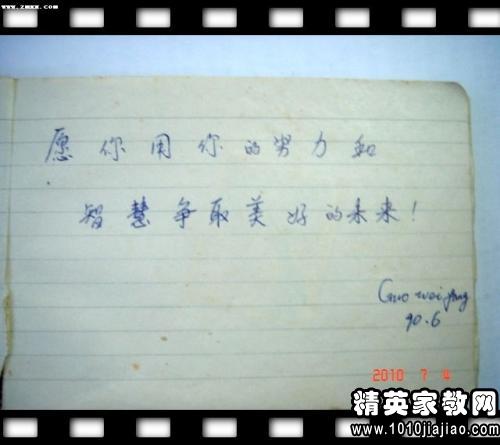 www.zmxx.com
愿你用你的努力和
智慧争取美好的未来！
Guo wei
90.6
2010 7 4
精英家教网
www.1010jiajiao.com